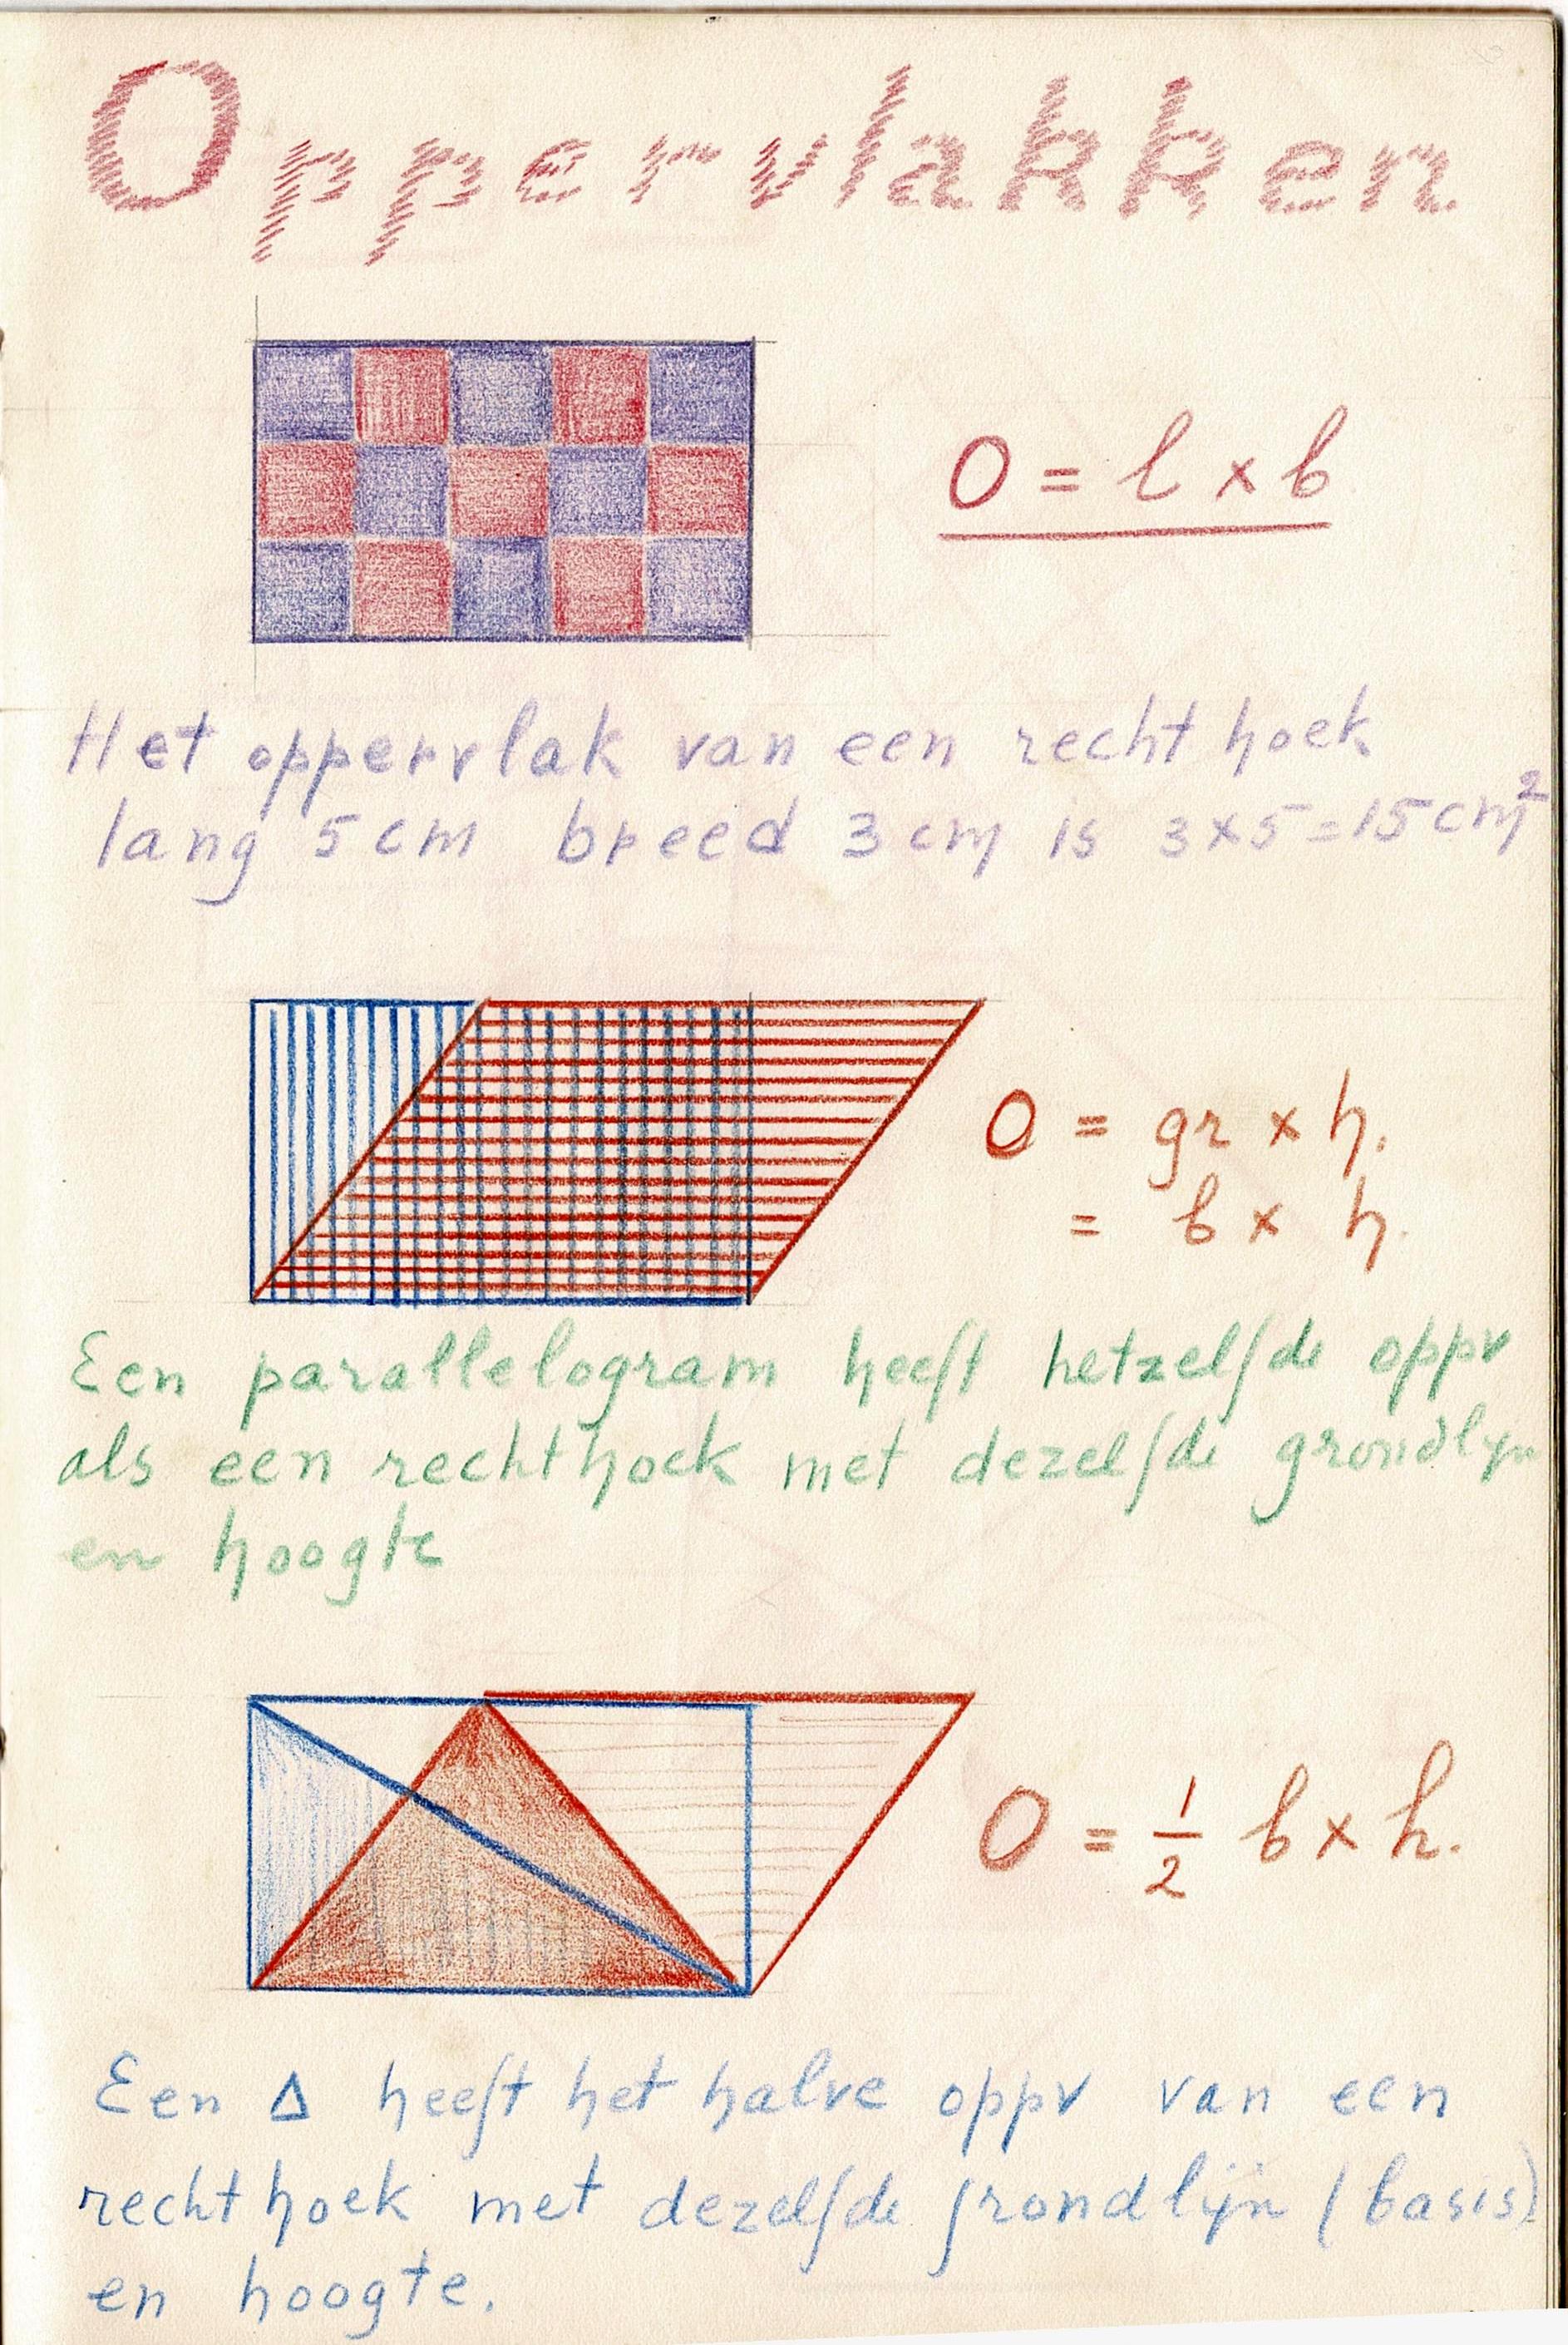 Oppervlakken
O = l × b
Het oppervlak van een rechthoek
lang 5 cm breed 3 cm is 3×5=15 cm²
O = gr × h.
= b × h.
Een parallelogram heeft hetzelfde oppv
als een rechthoek met dezelfde grondlyn
en hoogte
O = 1/2 b × h.
Een Δ heeft het halve oppv van een
rechthoek met dezelfde grondlijn (basis)
en hoogte.